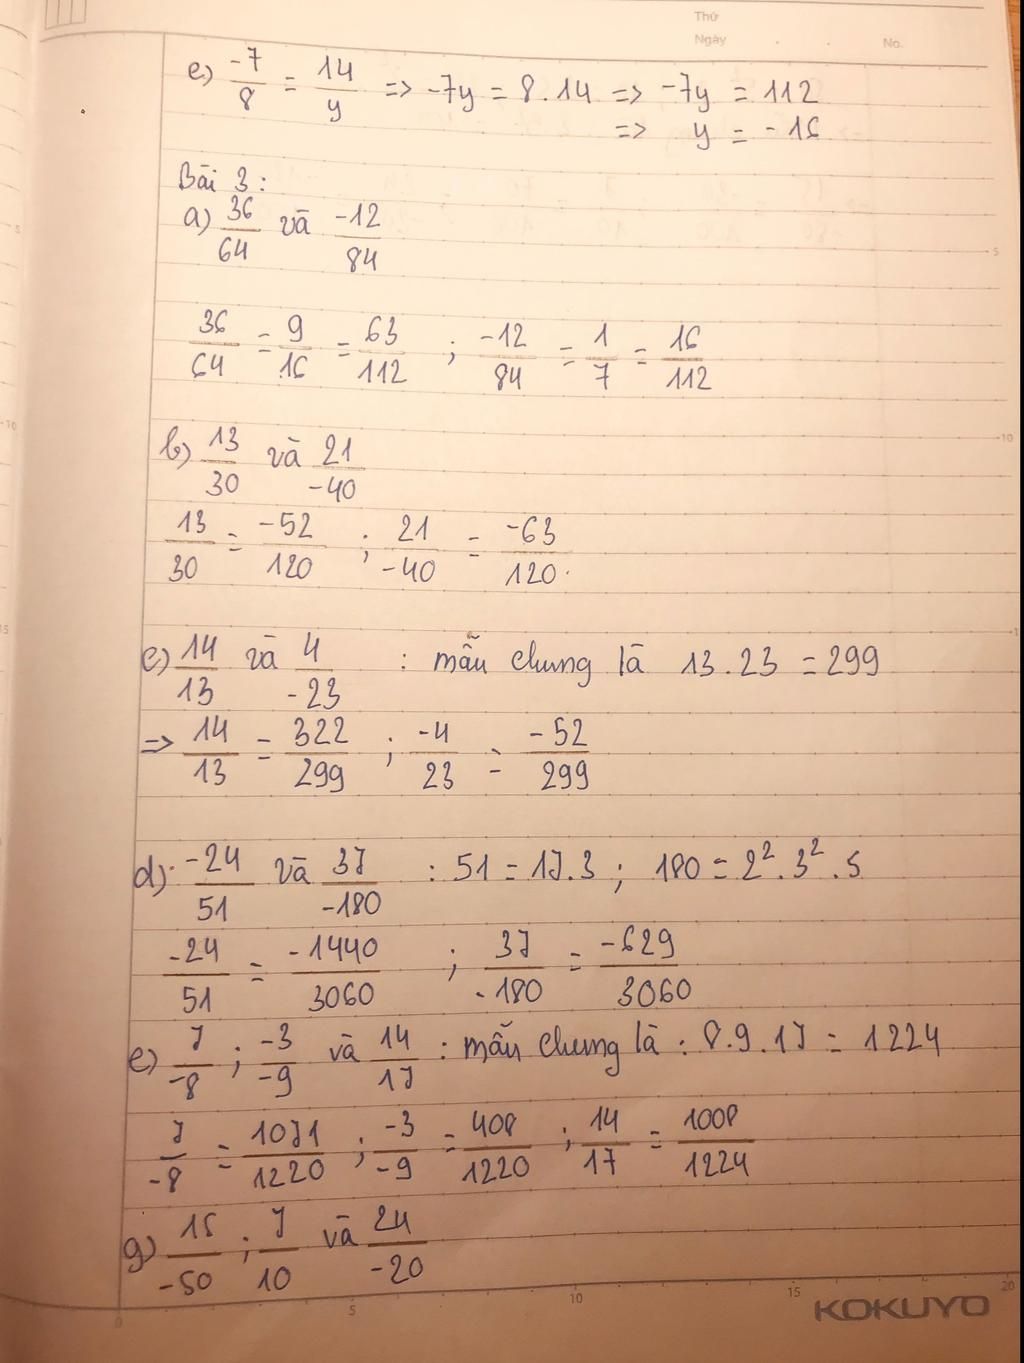 Thứ
Ngày . . No.
e) -7/8 = 14/y => -7y = 8.14 => -7y = 112
=> y = -16
Bài 3:
a) 36/64 và -12/84
36/64 = 9/16 = 63/112 ; -12/84 = 1/7 = 16/112
b) 13/30 và 21/-40
13/30 = -52/120 ; 21/-40 = -63/120.
c) 14/13 và 4/-23 : mẫu chung là 13.23 = 299
=> 14/13 = 322/299 ; -4/23 = -52/299
d) -24/51 và 37/-180 : 51 = 17.3 ; 180 = 2².3².5
-24/51 = -1440/3060 ; 37/-180 = -629/3060
e) 7/-8 ; -3/-9 và 14/17 : mẫu chung là : 8.9.17 = 1224
7/-8 = 1071/1220 ; -3/-9 = 408/1220 ; 14/17 = 1008/1224
g) 15/-50 ; 7/10 và 24/-20
0 5 10 15 20
KOKUYO